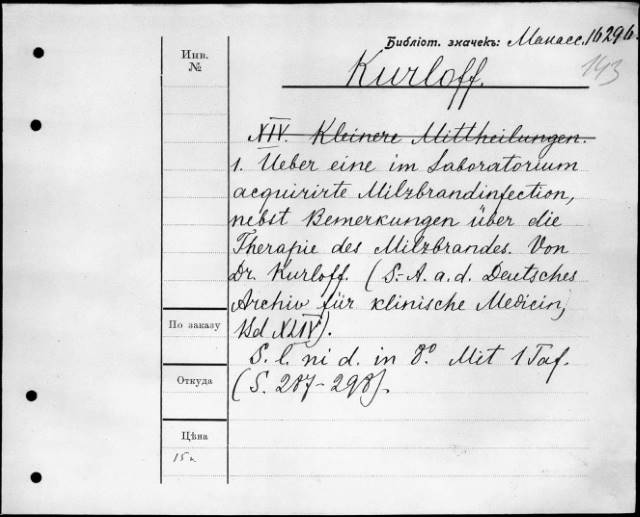 Библіот. значекъ: Манасс. 16296.
143
Инв.
№
Kurloff.
XIV. Kleinere Mittheilungen.
1. Ueber eine im Laboratorium
acquirirte Milzbrandinfection,
nebst Bemerkungen über die
Therapie des Milzbrandes. Von
Dr. Kurloff. (S.-A. a. d. Deutsches
Archiv für klinische Medicin,
Bd XLIV).
S. l. ni d. in 8º. Mit 1 Taf.
(S. 287-298).
По заказу
Откуда
Цѣна
15 к